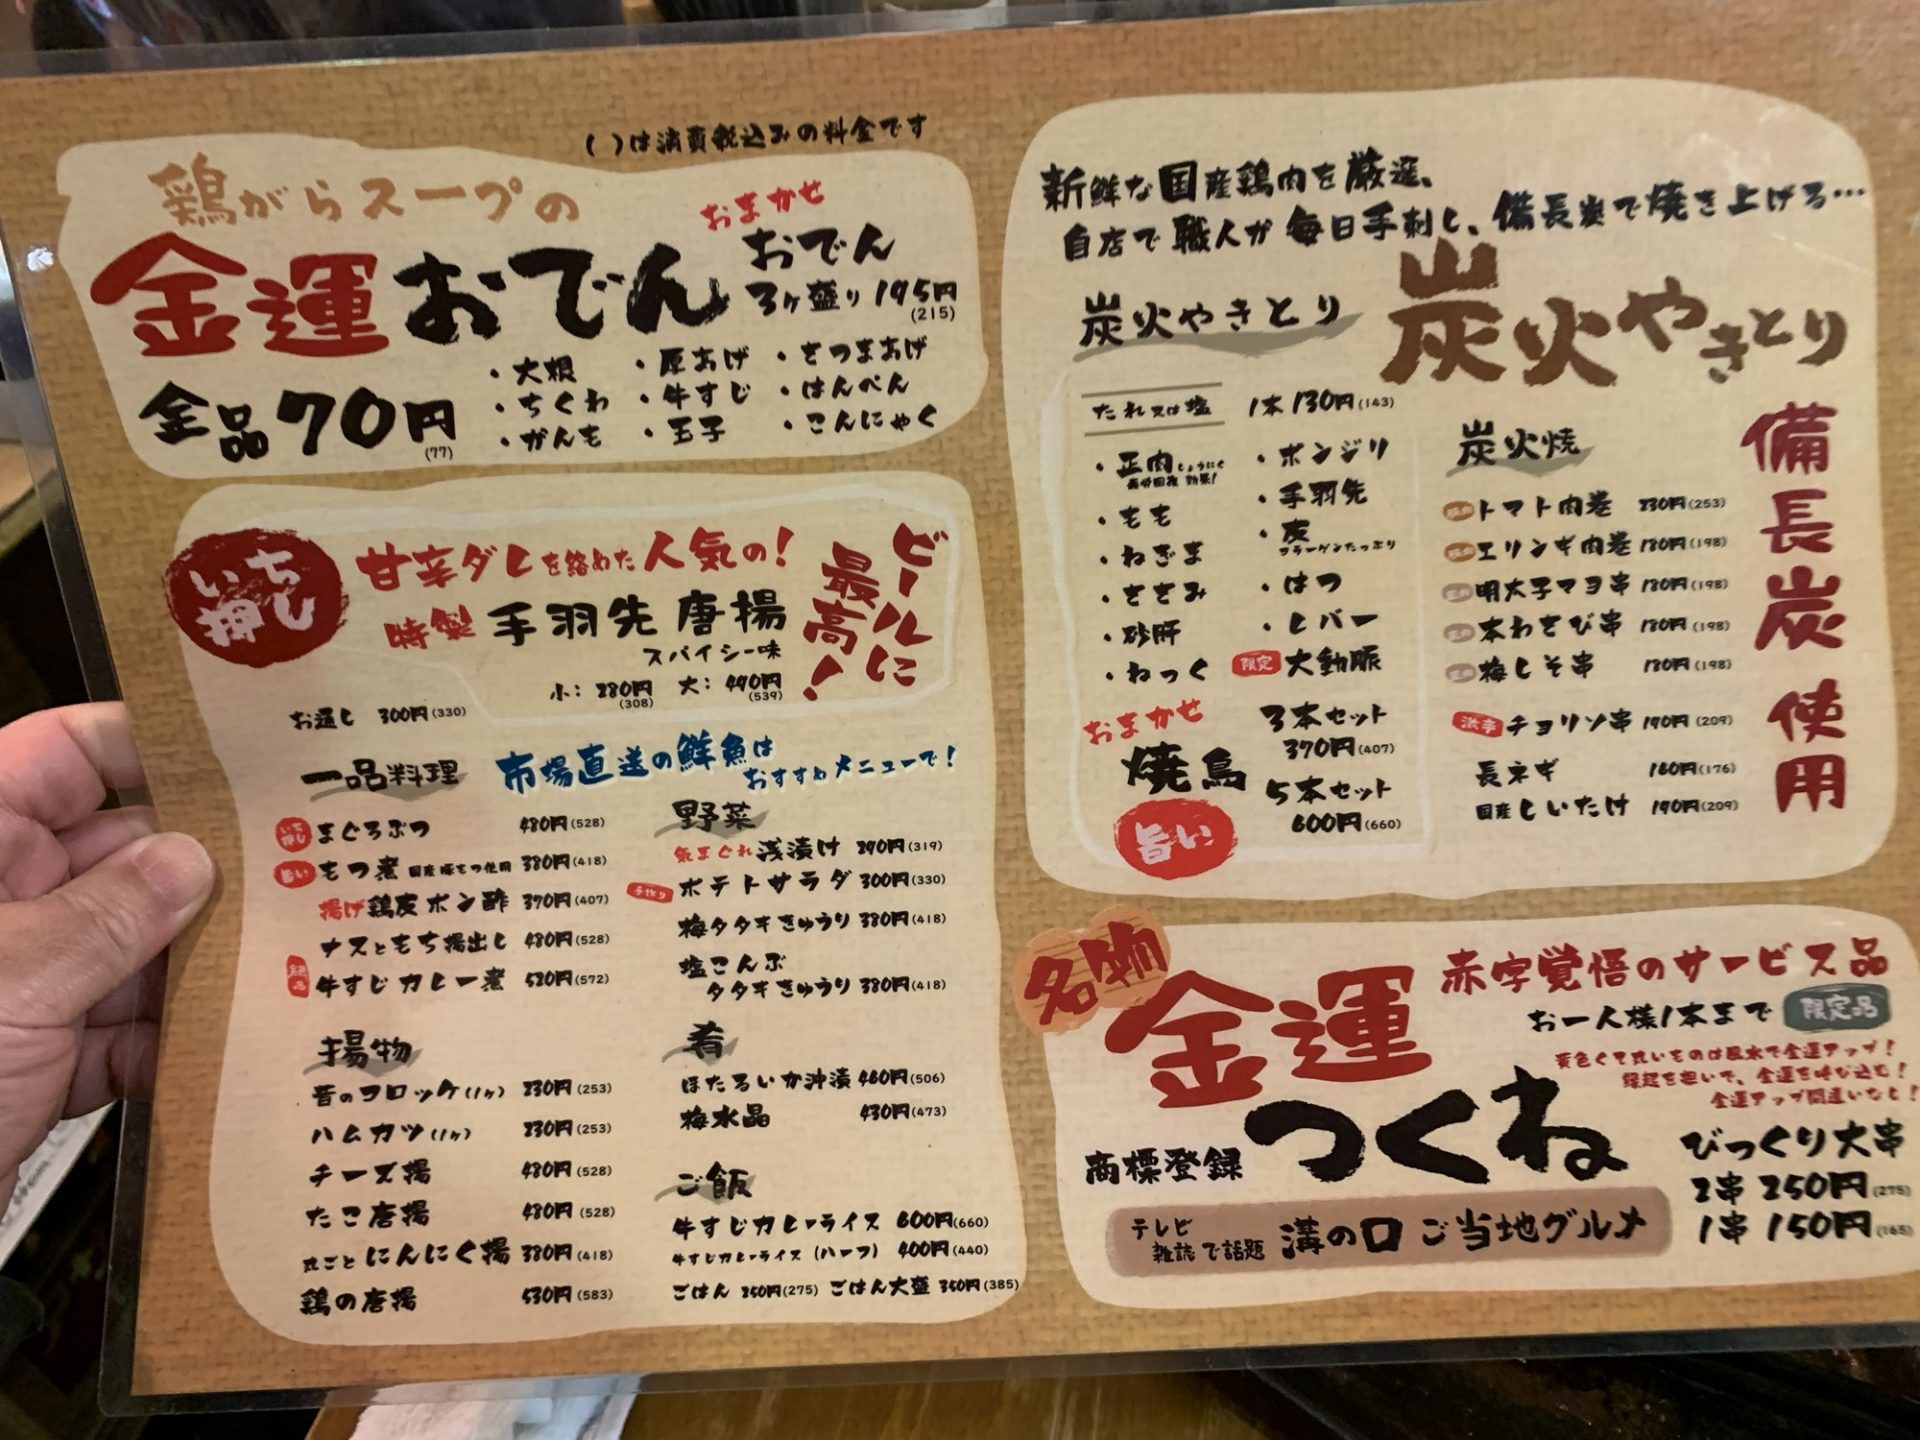 ( )は消費税込みの料金です
鶏がらスープの
金運おでん
全品70円
(77)
おまかせ
おでん
3ヶ盛り 195円
(215)
・大根 ・厚あげ ・さつまあげ
・ちくわ ・牛すじ ・はんぺん
・がんも ・玉子 ・こんにゃく
いち押し
甘辛ダレを絡めた人気の!
特製 手羽先 唐揚
スパイシー味
小: 280円 大: 490円
(308) (539)
ビールに
最高!
お通し 300円(330)
一品料理
市場直送の鮮魚は
おすすめメニューで!
いち押し まぐろぶつ 480円(528)
旨い もつ煮 国産豚もつ使用 380円(418)
揚げ鶏皮ポン酢 370円(407)
ナスともち揚出し 480円(528)
絶品 牛すじカレー煮 520円(572)
揚物
昔のコロッケ(1ヶ) 230円(253)
ハムカツ(1ヶ) 230円(253)
チーズ揚 480円(528)
たこ唐揚 480円(528)
丸ごとにんにく揚 380円(418)
鶏の唐揚 530円(583)
野菜
気まぐれ浅漬け 290円(319)
手作り ポテトサラダ 300円(330)
梅タタキきゅうり 380円(418)
塩こんぶ
タタキきゅうり 380円(418)
肴
ほたるいか沖漬 460円(506)
梅水晶 430円(473)
ご飯
牛すじカレーライス 600円(660)
牛すじカレーライス(ハーフ) 400円(440)
ごはん 250円(275) ごはん大盛 350円(385)
新鮮な国産鶏肉を厳選、
自店で職人が毎日手刺し、備長炭で焼き上げる…
炭火やきとり
炭火やきとり
たれ又は塩 1本130円(143)
・正肉しょうにく
疲労回復 効果!
・もも
・ねぎま
・ささみ
・砂肝
・ねっく
・ボンジリ
・手羽先
・皮
コラーゲンたっぷり
・はつ
・レバー
限定 大動脈
おまかせ
焼鳥
旨い
3本セット
370円(407)
5本セット
600円(660)
炭火焼
トマト肉巻 230円(253)
エリンギ肉巻 180円(198)
明太子マヨ串 180円(198)
本わさび串 180円(198)
梅しそ串 180円(198)
激辛 チョリソ串 190円(209)
長ネギ 160円(176)
国産しいたけ 190円(209)
備長炭使用
名物
金運
つくね
商標登録
赤字覚悟のサービス品
お一人様1本まで 限定品
黄色くて丸いものは風水で金運アップ!
縁起を担いで、金運を呼び込む!
金運アップ間違いなし!
びっくり大串
2串 250円(275)
1串 150円(165)
テレビ
雑誌で話題 溝の口 ご当地グルメ